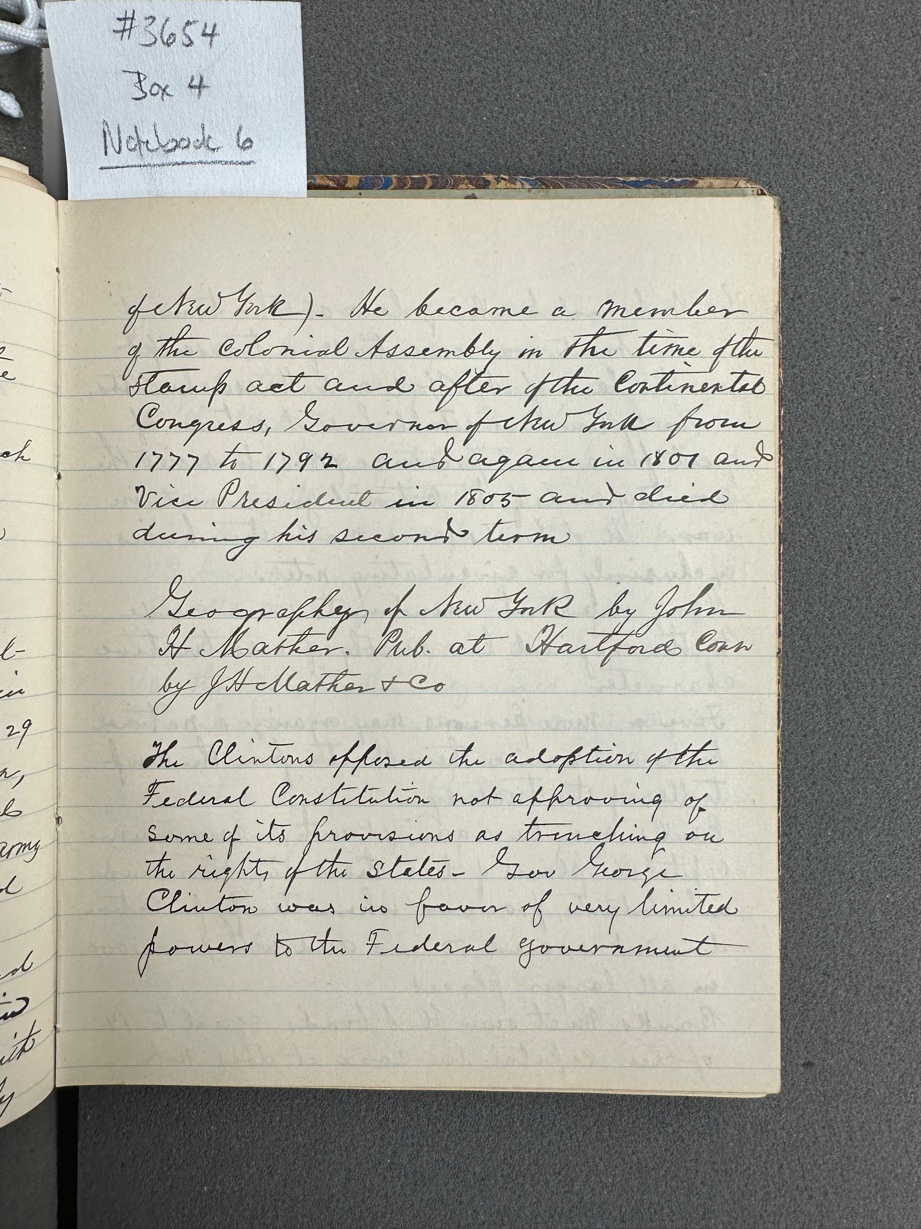 #3654
Box 4
Notebook 6
of New York). He became a member
of the Colonial Assembly in the time of the
stamp act and after of the Continental
Congress, Governor of New York from
1777 to 1792 and again in 1801 and
Vice President in 1805 and died
during his second term
Geography of New York by John
H Mather. Pub. at Hartford Conn
by J H Mather & Co
The Clintons opposed the adoption of the
Federal Constitution not approving of
some of its provisions as trenching on
the rights of the States - Gov George
Clinton was in favor of very limited
powers to the Federal government
ch
29
army